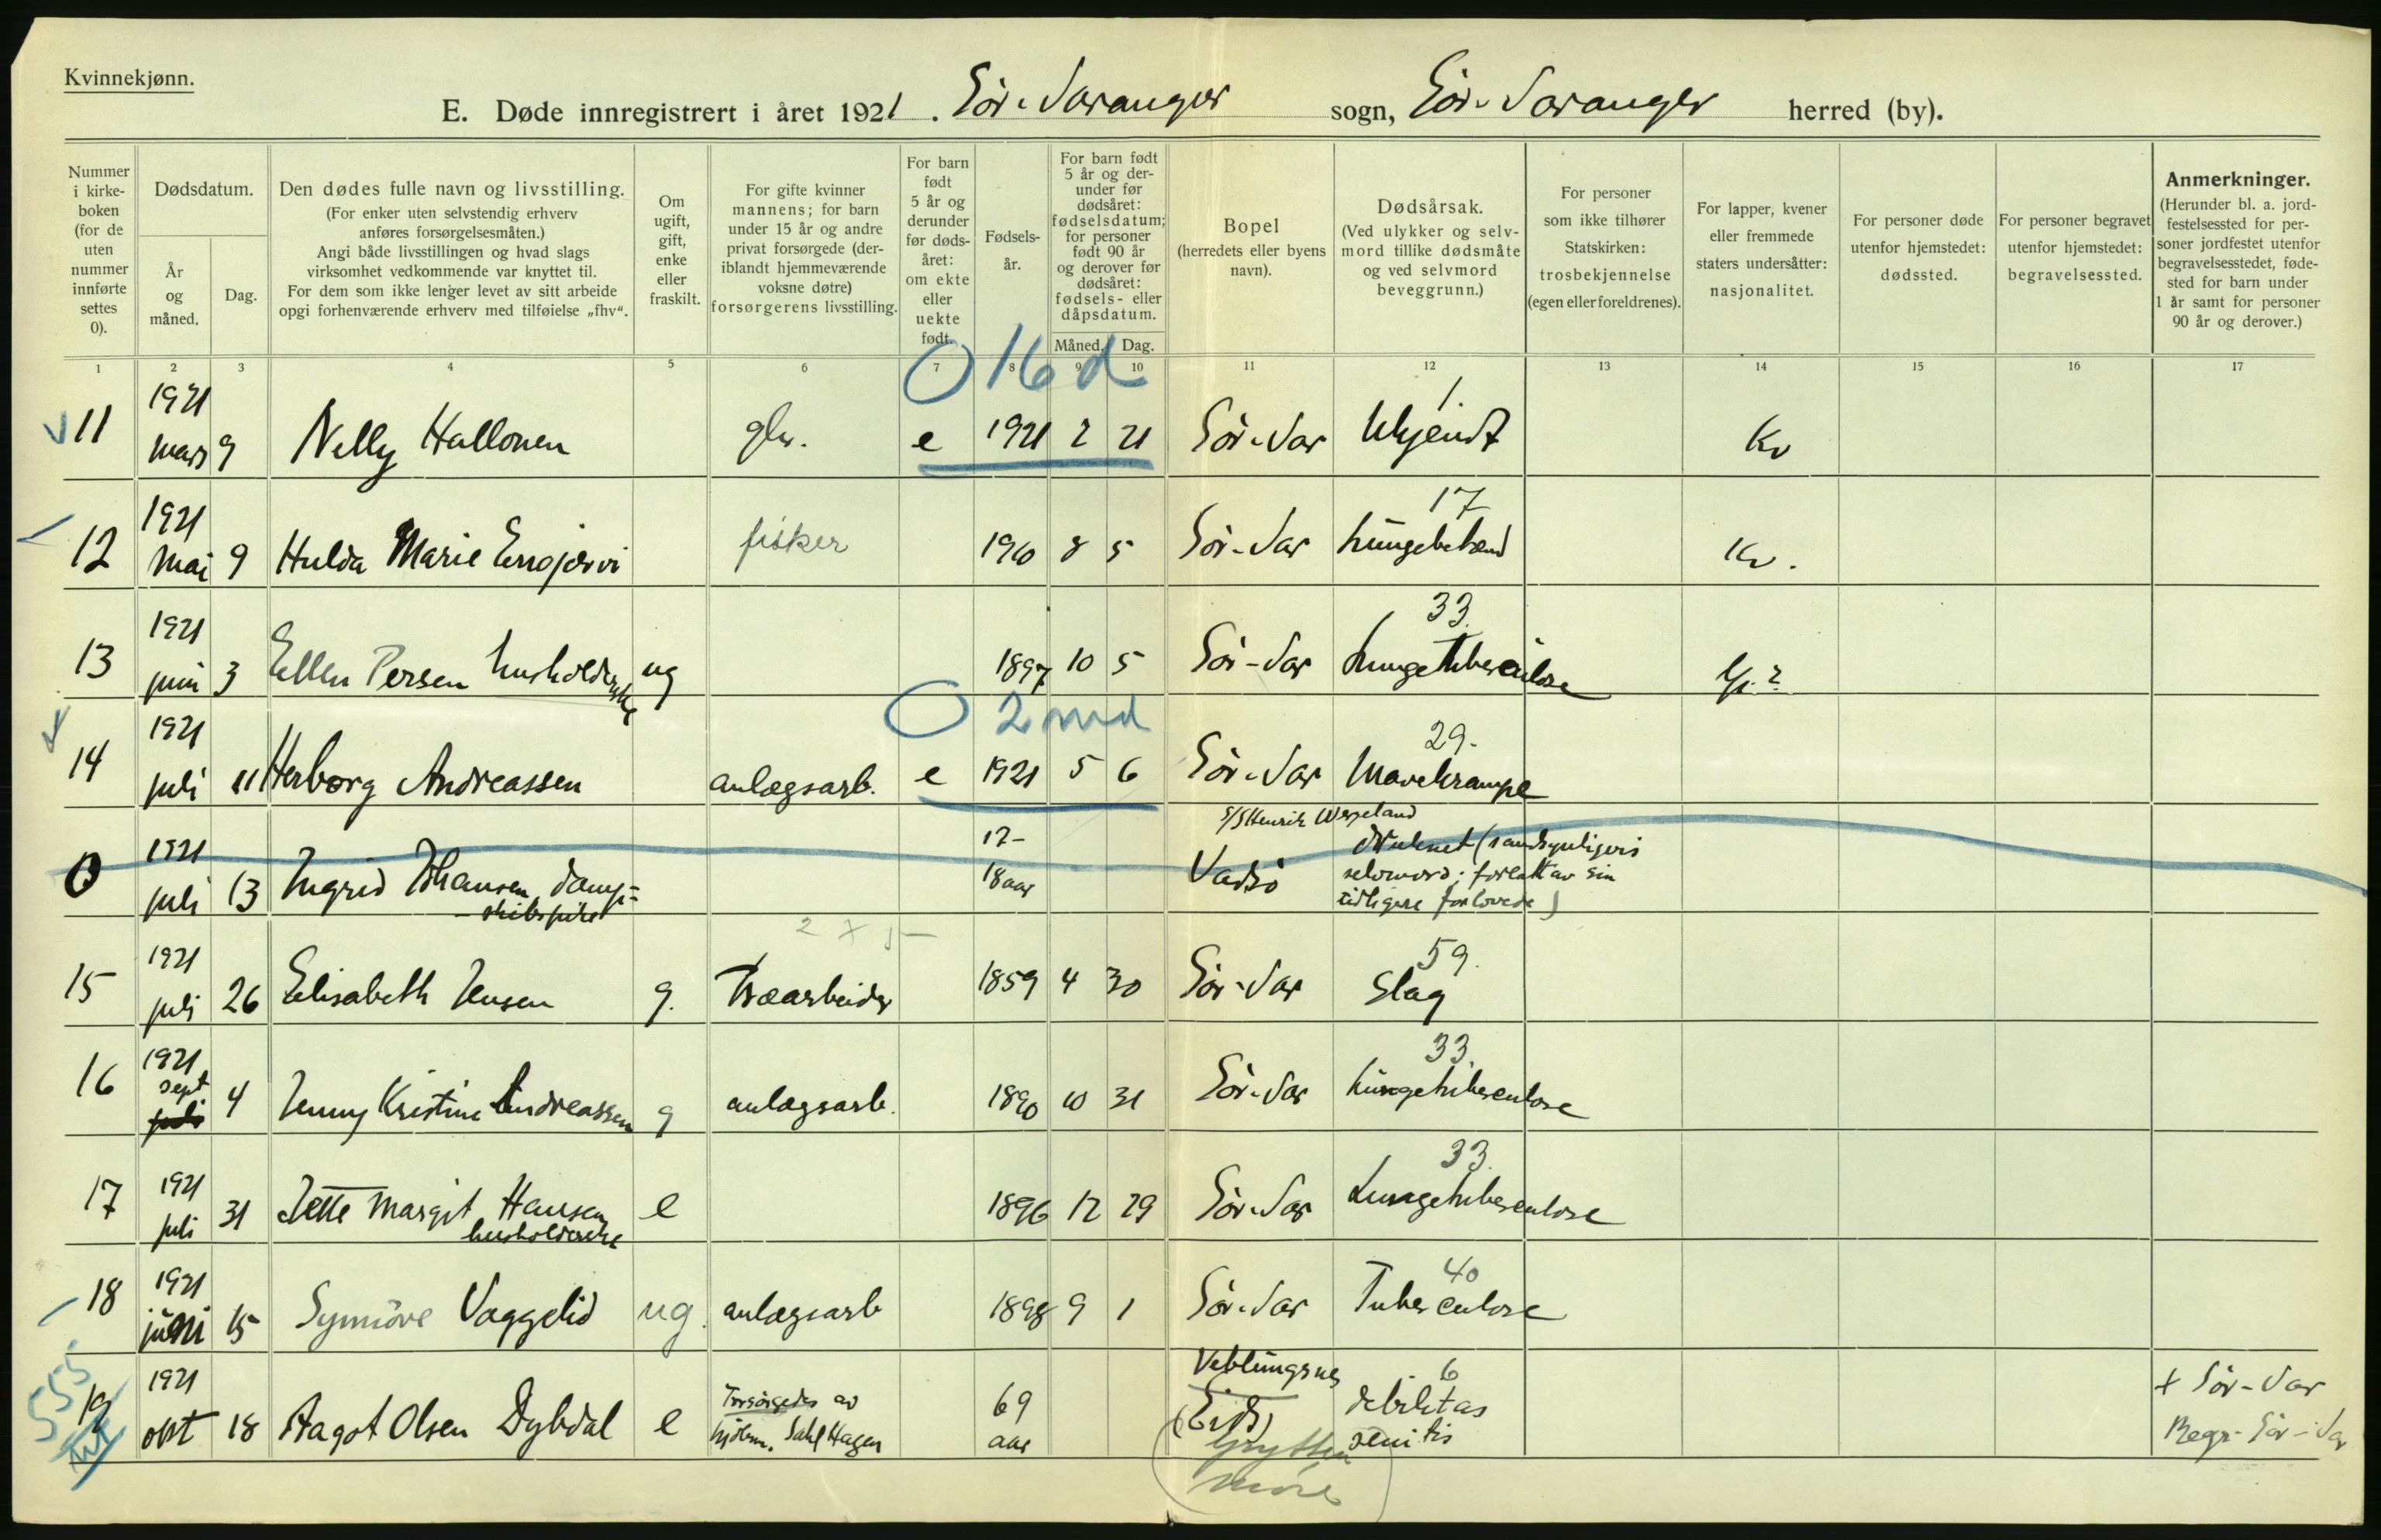 Kvinnekjønn.
E. Døde innregistrert i året 1921. Sör-Varanger sogn, Sör-Varanger herred (by).
Nummer i kirkeboken (for de uten nummer innførte settes 0).
Dødsdatum.
År og måned.
Dag.
Den dødes fulle navn og livsstilling.
(For enker uten selvstendig erhverv
anføres forsørgelsesmåten.)
Angi både livsstillingen og hvad slags
virksomhet vedkommende var knyttet til.
For dem som ikke lenger levet av sitt arbeide
opgi forhenværende erhverv med tilføielse „fhv“.
Om ugift, gift, enke eller fraskilt.
For gifte kvinner
mannens; for barn
under 15 år og andre
privat forsørgede (deriblandt hjemmeværende
voksne døtre)
forsørgerens livsstilling.
For barn født 5 år og derunder før dødsåret: om ekte eller uekte født.
Fødselsår.
For barn født 5 år og derunder før dødsåret: fødselsdatum; for personer født 90 år og derover før dødsåret: fødsels- eller dåpsdatum.
Måned. Dag.
Bopel
(herredets eller byens navn).
Dødsårsak.
(Ved ulykker og selvmord tillike dødsmåte
og ved selvmord
beveggrunn.)
For personer
som ikke tilhører
Statskirken:
trosbekjennelse
(egen eller foreldrenes).
For lapper, kvener
eller fremmede
staters undersåtter:
nasjonalitet.
For personer døde
utenfor hjemstedet:
dødssted.
For personer begravet
utenfor hjemstedet:
begravelsessted.
Anmerkninger.
(Herunder bl. a. jordfestelsessted for personer jordfestet utenfor
begravelsesstedet, fødested for barn under
1 år samt for personer
90 år og derover.)
1 2 3 4 5 6 7 8 9 10 11 12 13 14 15 16 17
0 16 d
11 1921 mars 9 Nelly Hallonen e 1921 2 21 Sör-Var 1. Ukjendt Kv
12 1921 mai 9 Hulda Marie fisker 1910 8 5 Sör-Var 17 Kv.
13 1921 juni 3 Ellen Persen husholderske ug 1897 10 5 Sör-Var 33. Lungetuberculose
0 2 md
14 1921 juli 11 Herborg Andreassen anlægsarb. e 1921 5 6 Sör-Var 29. Mavekrampe
0 1921 juli 13 Ingrid Johansen, dampskibspike 17-18 aar S/S Henrik Wergeland Vadsö druknet (sandsynligvis
selvmord; forlatt av sin
tidligere forlovede)
2 x 5
15 1921 juli 26 Elisabeth Jensen g. Træarbeider 1859 4 30 Sör-Var 59. Slag
16 1921 sept juli 4 Jenny Kristine Andreassen g anlægsarb. 1890 10 31 Sör-Var 33. Lungetuberculose
17 1921 juli 31 Jette Margit Hansen husholderske e 1896 12 29 Sör-Var 33. Lungetuberculose
18 1921 juni 15 Synnöve Vaggelid ug. anlægsarb 1898 9 1 Sör-Var 40 Tuberculose
555
19 1921 okt 18 Aagot Olsen Dybdal e Forsörgedes av Hagen 69 aar Veblungsnes (Eid) 6 debilitas
senitis + Sör-Var
Begr. Sör-Var
Grytten
Möre